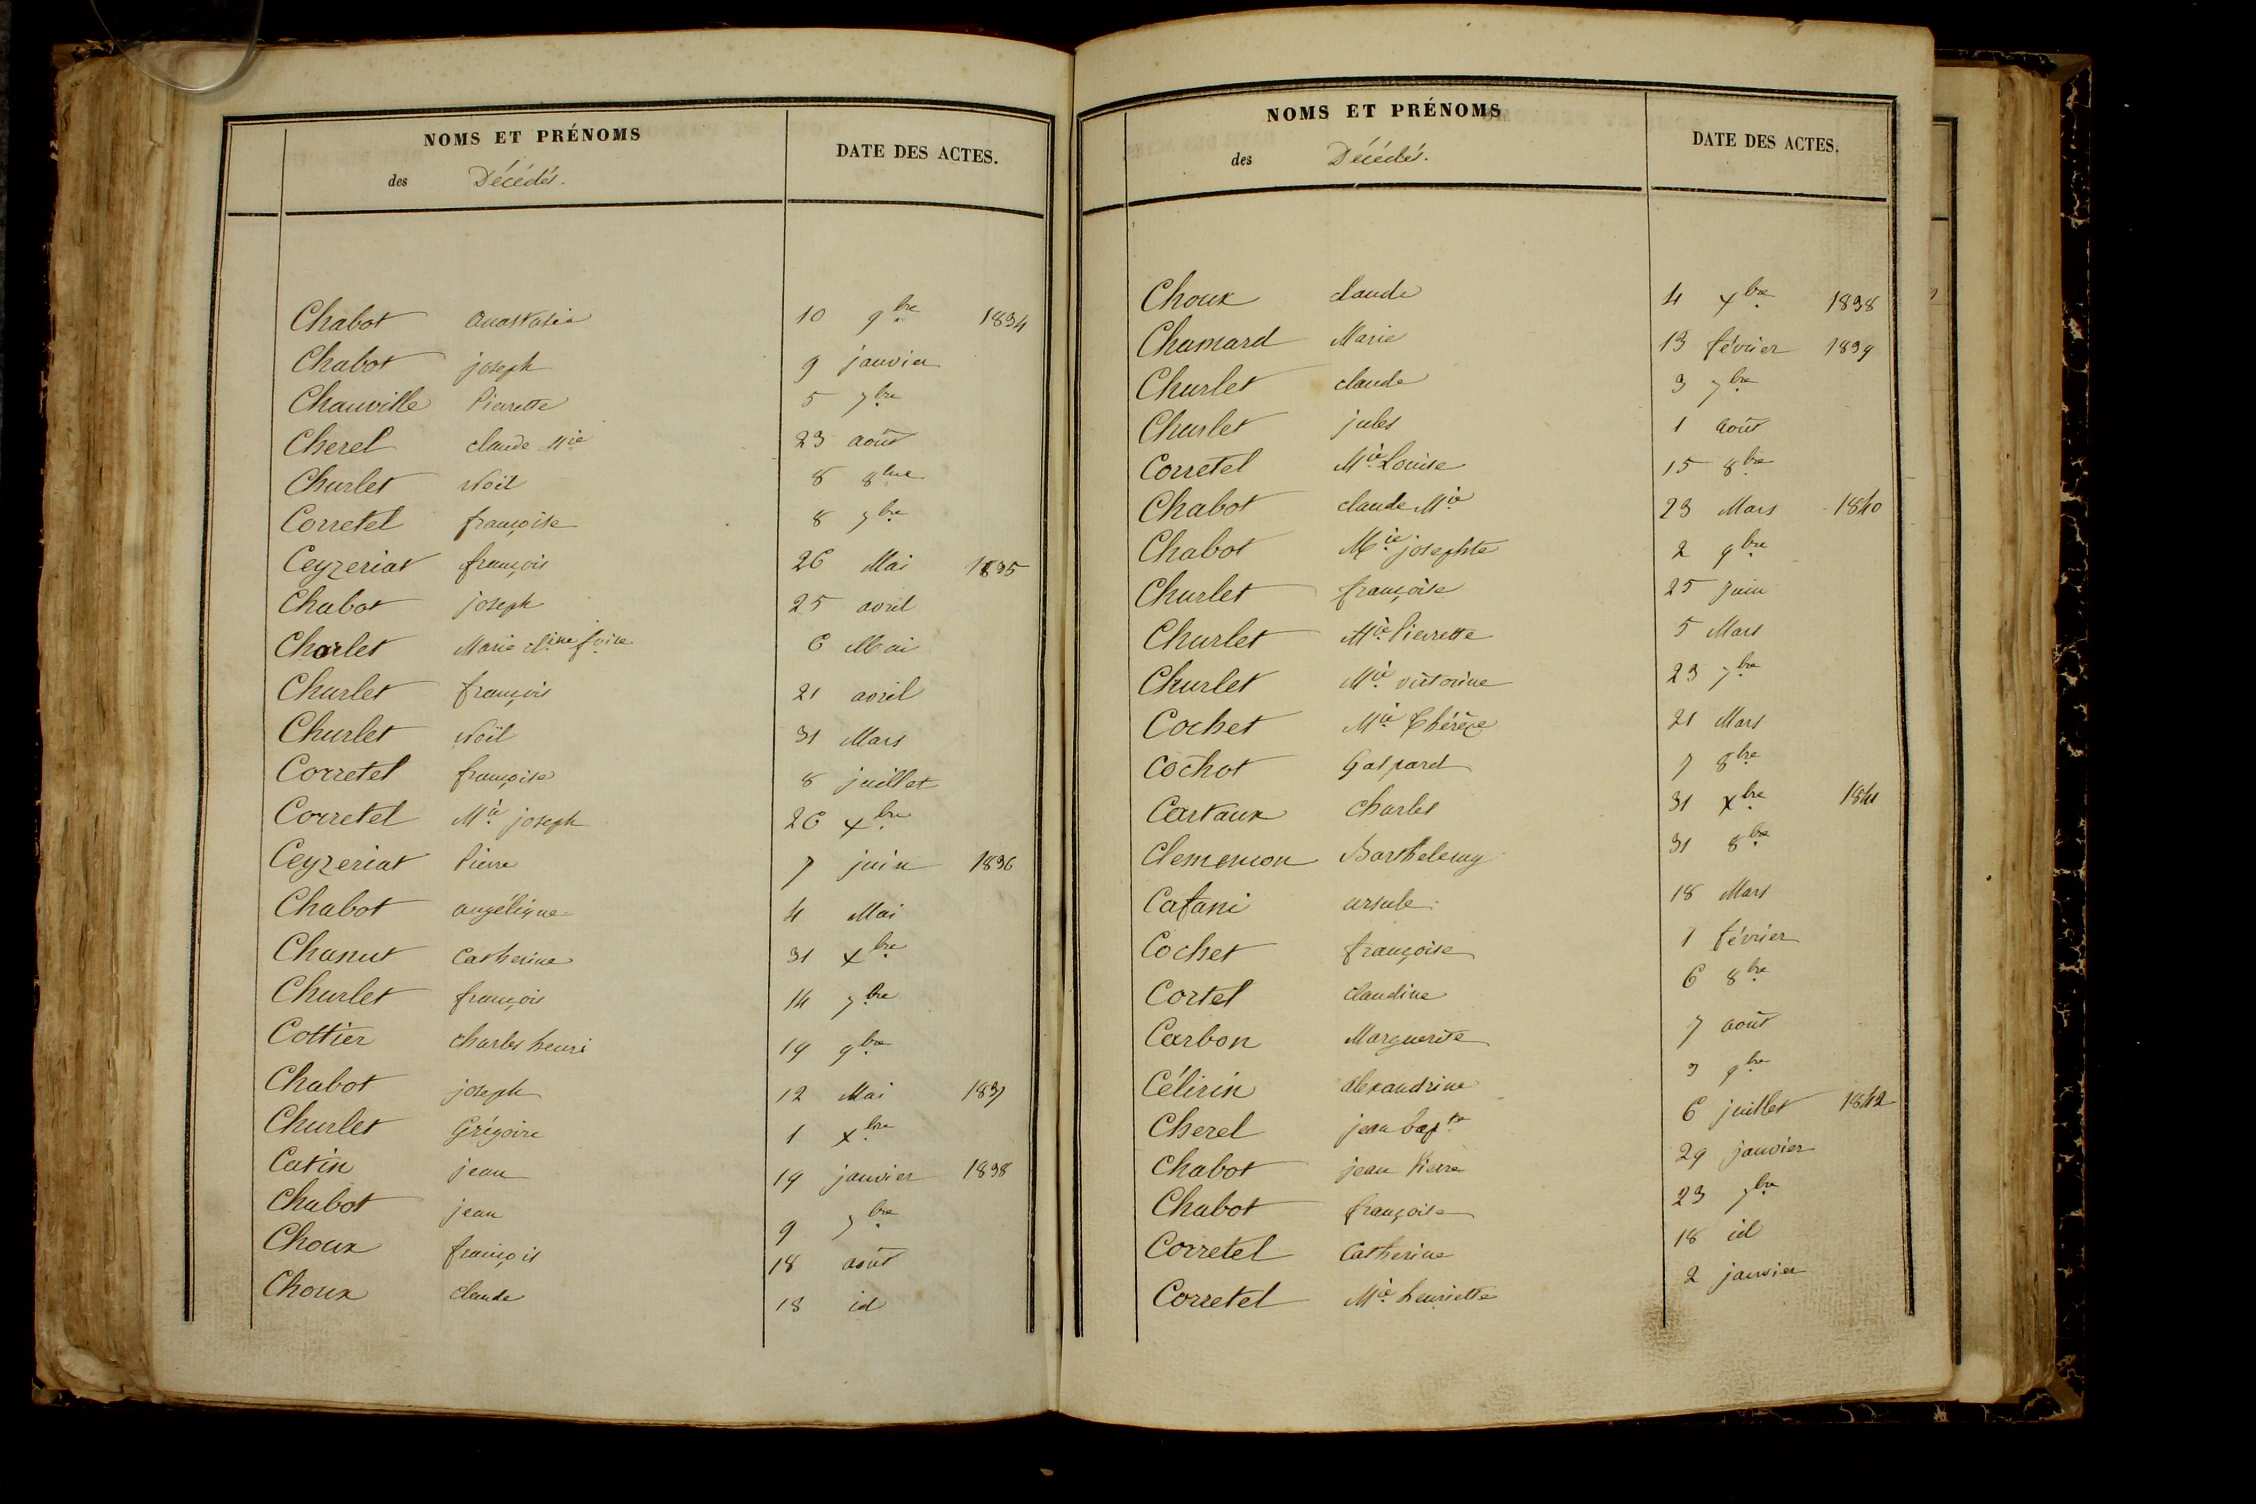 NOMS ET PRÉNOMS
des Décédés.
DATE DES ACTES.
Chabot anastasie 10 9bre 1834
Chabot joseph 9 janvier
Chauville Pierrette 5 7bre
Cherel claude Mie 23 août
Churlet Noël 8 8bre
Corretel françoise 8 7bre
Ceyzeriat françois 26 Mai 1835
Chabot joseph 25 avril
Charlet Marie 6 Mai
Churlet françois 21 avril
Churlet Noël 31 Mars
Corretel françoise 8 juillet
Corretel Mie joseph 26 Xbre
Ceyzeriat Pierre 7 juin 1836
Chabot angélique 4 Mai
Chanut Catherine 31 Xbre
Churlet françois 14 7bre
Cottier charles henri 19 9bre
Chabot joseph 12 Mai 1837
Churlet Grégoire 1 Xbre
Catin jean 19 janvier 1838
Chabot jean 9 7bre
Choux françois 18 août
Choux claude 18 id
NOMS ET PRÉNOMS
des Décédés.
DATE DES ACTES.
Choux claude 4 Xbre 1838
Chamard Marie 13 février 1839
Churlet claude 3 7bre
Churlet jules 1 août
Corretel Mie Louise 15 8bre
Chabot claude Mie 23 Mars 1840
Chabot Mie josephte 2 9bre
Churlet françoise 25 juin
Churlet Mie Pierrette 5 Mars
Churlet Mie victorine 23 7bre
Cochet Mie Thérèze 21 Mars
Cochot Gaspard 7 8bre
Cartaux charles 31 Xbre 1841
Clemencon Barthelemy 31 8bre
Cafani ursule 18 Mars
Cochet françoise 1 février
Cortel claudine 6 8bre
Carbon Marguerite 7 août
Célirin alexandrine 3 9bre
Cherel jean bapte 6 juillet 1842
Chabot jean Pierre 29 janvier
Chabot françoise 23 7bre
Corretel Catherine 18 id
Corretel Mie henriette 2 janvier